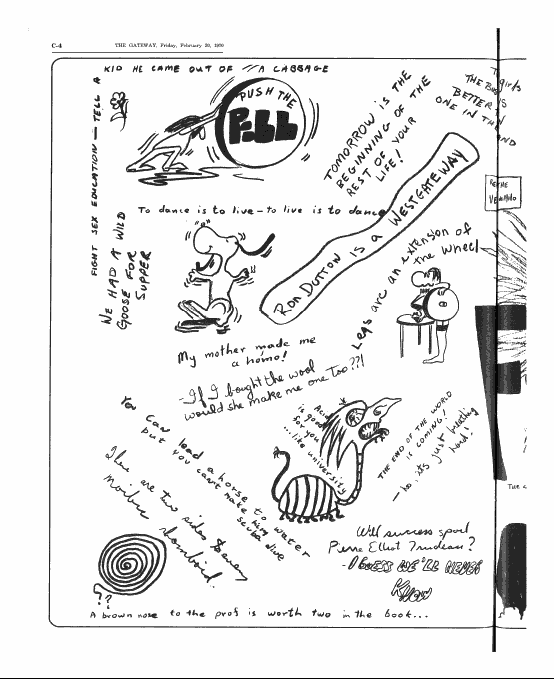 C-4
THE GATEWAY, Friday, February 20, 1970
KID HE CAME OUT OF A CABBAGE
FIGHT SEX EDUCATION — TELL A
PUSH THE
PILL
TOMORROW IS THE
BEGINNING OF THE
REST OF YOUR
LIFE!
girls
THE
BETTER IS
ONE IN THE
AND
WE HAD A WILD
GOOSE FOR
SUPPER
To dance is to live - to live is to dance
RON DUTTON IS A WESTGATEWAY
Legs are an extension of
the wheel
My mother made me
a homo!
- If I bought the wool
would she make me one too??!
You can lead a horse to water
but you can't make him
scuba dive
There are two sides to every
Acid
is good
for you
...like university
THE END OF THE WORLD
IS COMING!
- no, it's just breathing
hard!
Will success spoil
Pierre Elliot Trudeau?
- I GUESS WE'LL NEVER
KNOW
??
A brown nose to the prof is worth two in the book...